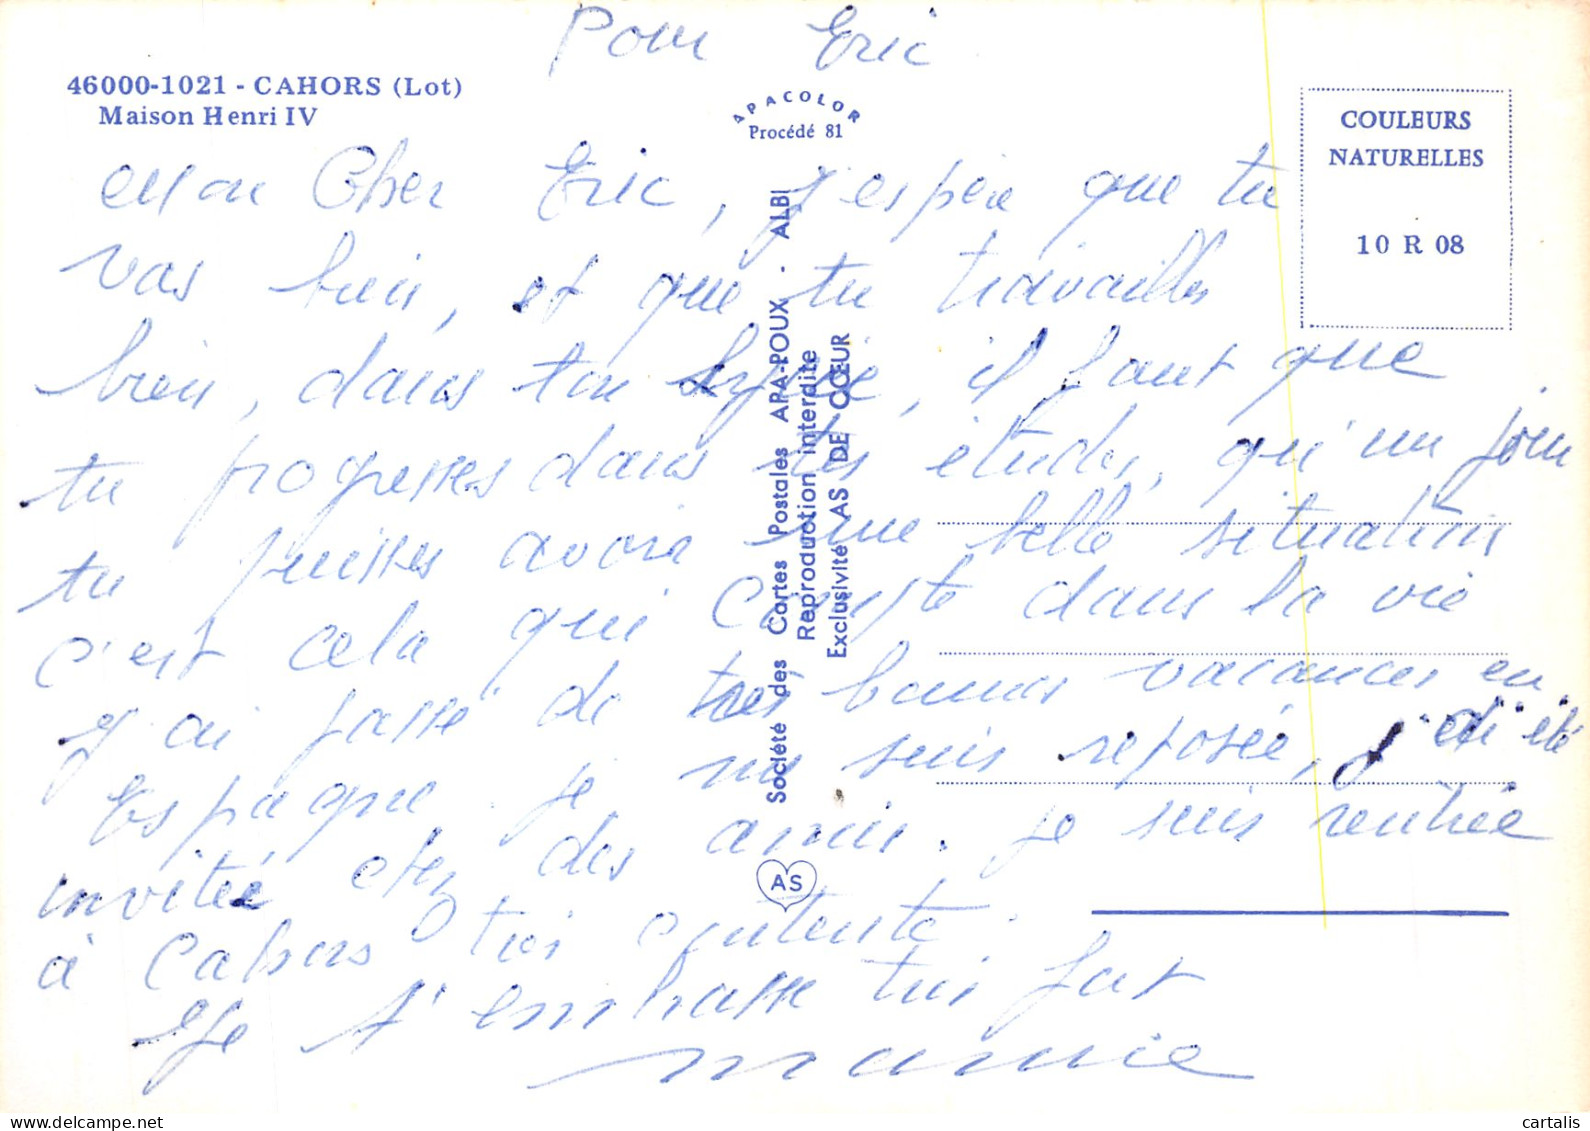 Pour Eric
46000-1021 - CAHORS (Lot)
Maison Henri IV
APACOLOR
Procédé 81
COULEURS
NATURELLES
10 R 08
Mon Cher Eric, j'espère que tu
vas bien, et que tu travailles
bien, dans ton lycée, il faut que
tu progresses dans tes études, qu'un jour
tu puisses avoir une belle situation
c'est cela qui compte dans la vie
J'ai passé de très bonnes vacances en
Espagne je me suis reposée, j'ai été
invitée chez des amis. je suis rentrée
à Cahors très contente.
Je t'embrasse très fort
mamie
Société des Cartes Postales APA-POUX - ALBI
Reproduction interdite
Exclusivité AS DE CŒUR
AS
delcampe.net
cartalis